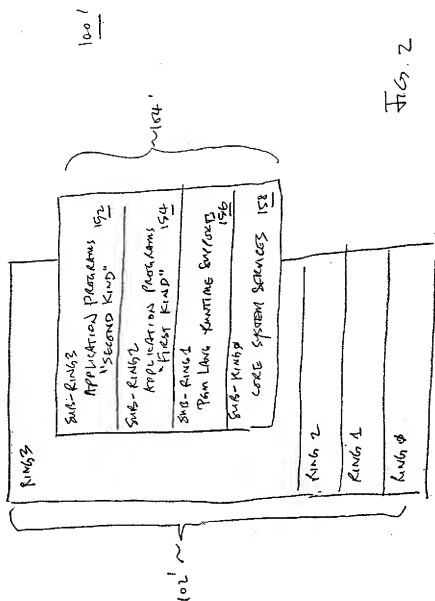 100'
RING 3
SUB-RING 3
APPLICATION PROGRAMS 152
"SECOND KIND"
SUB-RING 2
APPLICATION PROGRAMS 154
"FIRST KIND"
SUB-RING 1
PGM LANG RUNTIME SUPPORTS
156
SUB-RING Ø
CORE SYSTEM SERVICES 158
~104'
RING 2
RING 1
RING Ø
102' ~
FIG. 2